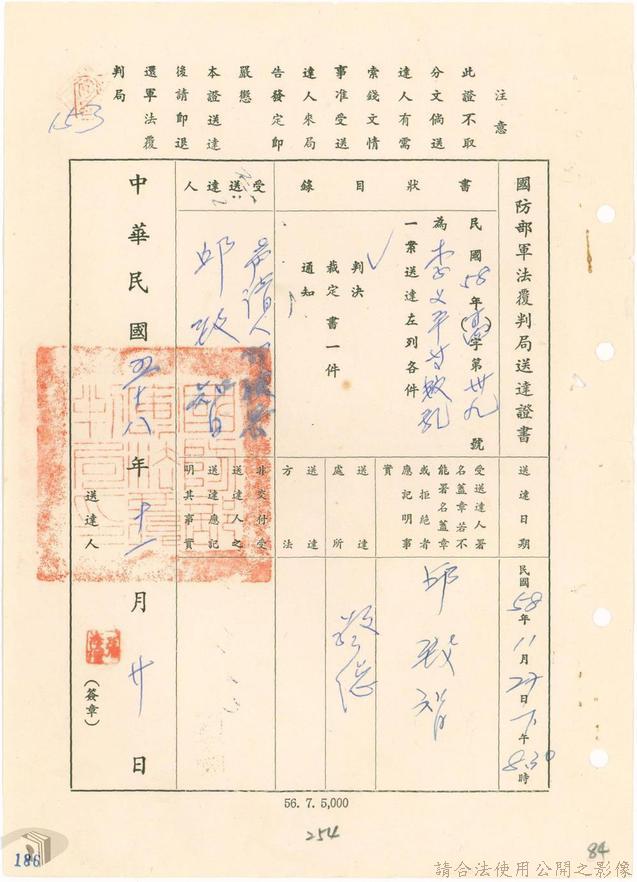 注意
此證不取
分文倘送
達人有需
索錢文情
事准受送
達人來局
告發定即
嚴懲
本證送達
後請即退
還軍法覆
判局
153
國防部軍法覆判局送達證書
書狀目錄
民國58年(高)字第卅九號
為李義平等叛亂
一案送達左列各件
判決
裁定書一件
通知
受送達人
邱致智
中華民國五十八年十一月廿日
送達人
(簽章)
送達日期
民國58年11月27日下午8.30時
受送達人署
名蓋章若不
能署名蓋章
或拒絕者
應記明事
實
邱致智
送達處所
送達方法
非交付受
送達人之
送達應記
明其事實
56. 7. 5,000
254
84
186
請合法使用公開之影像